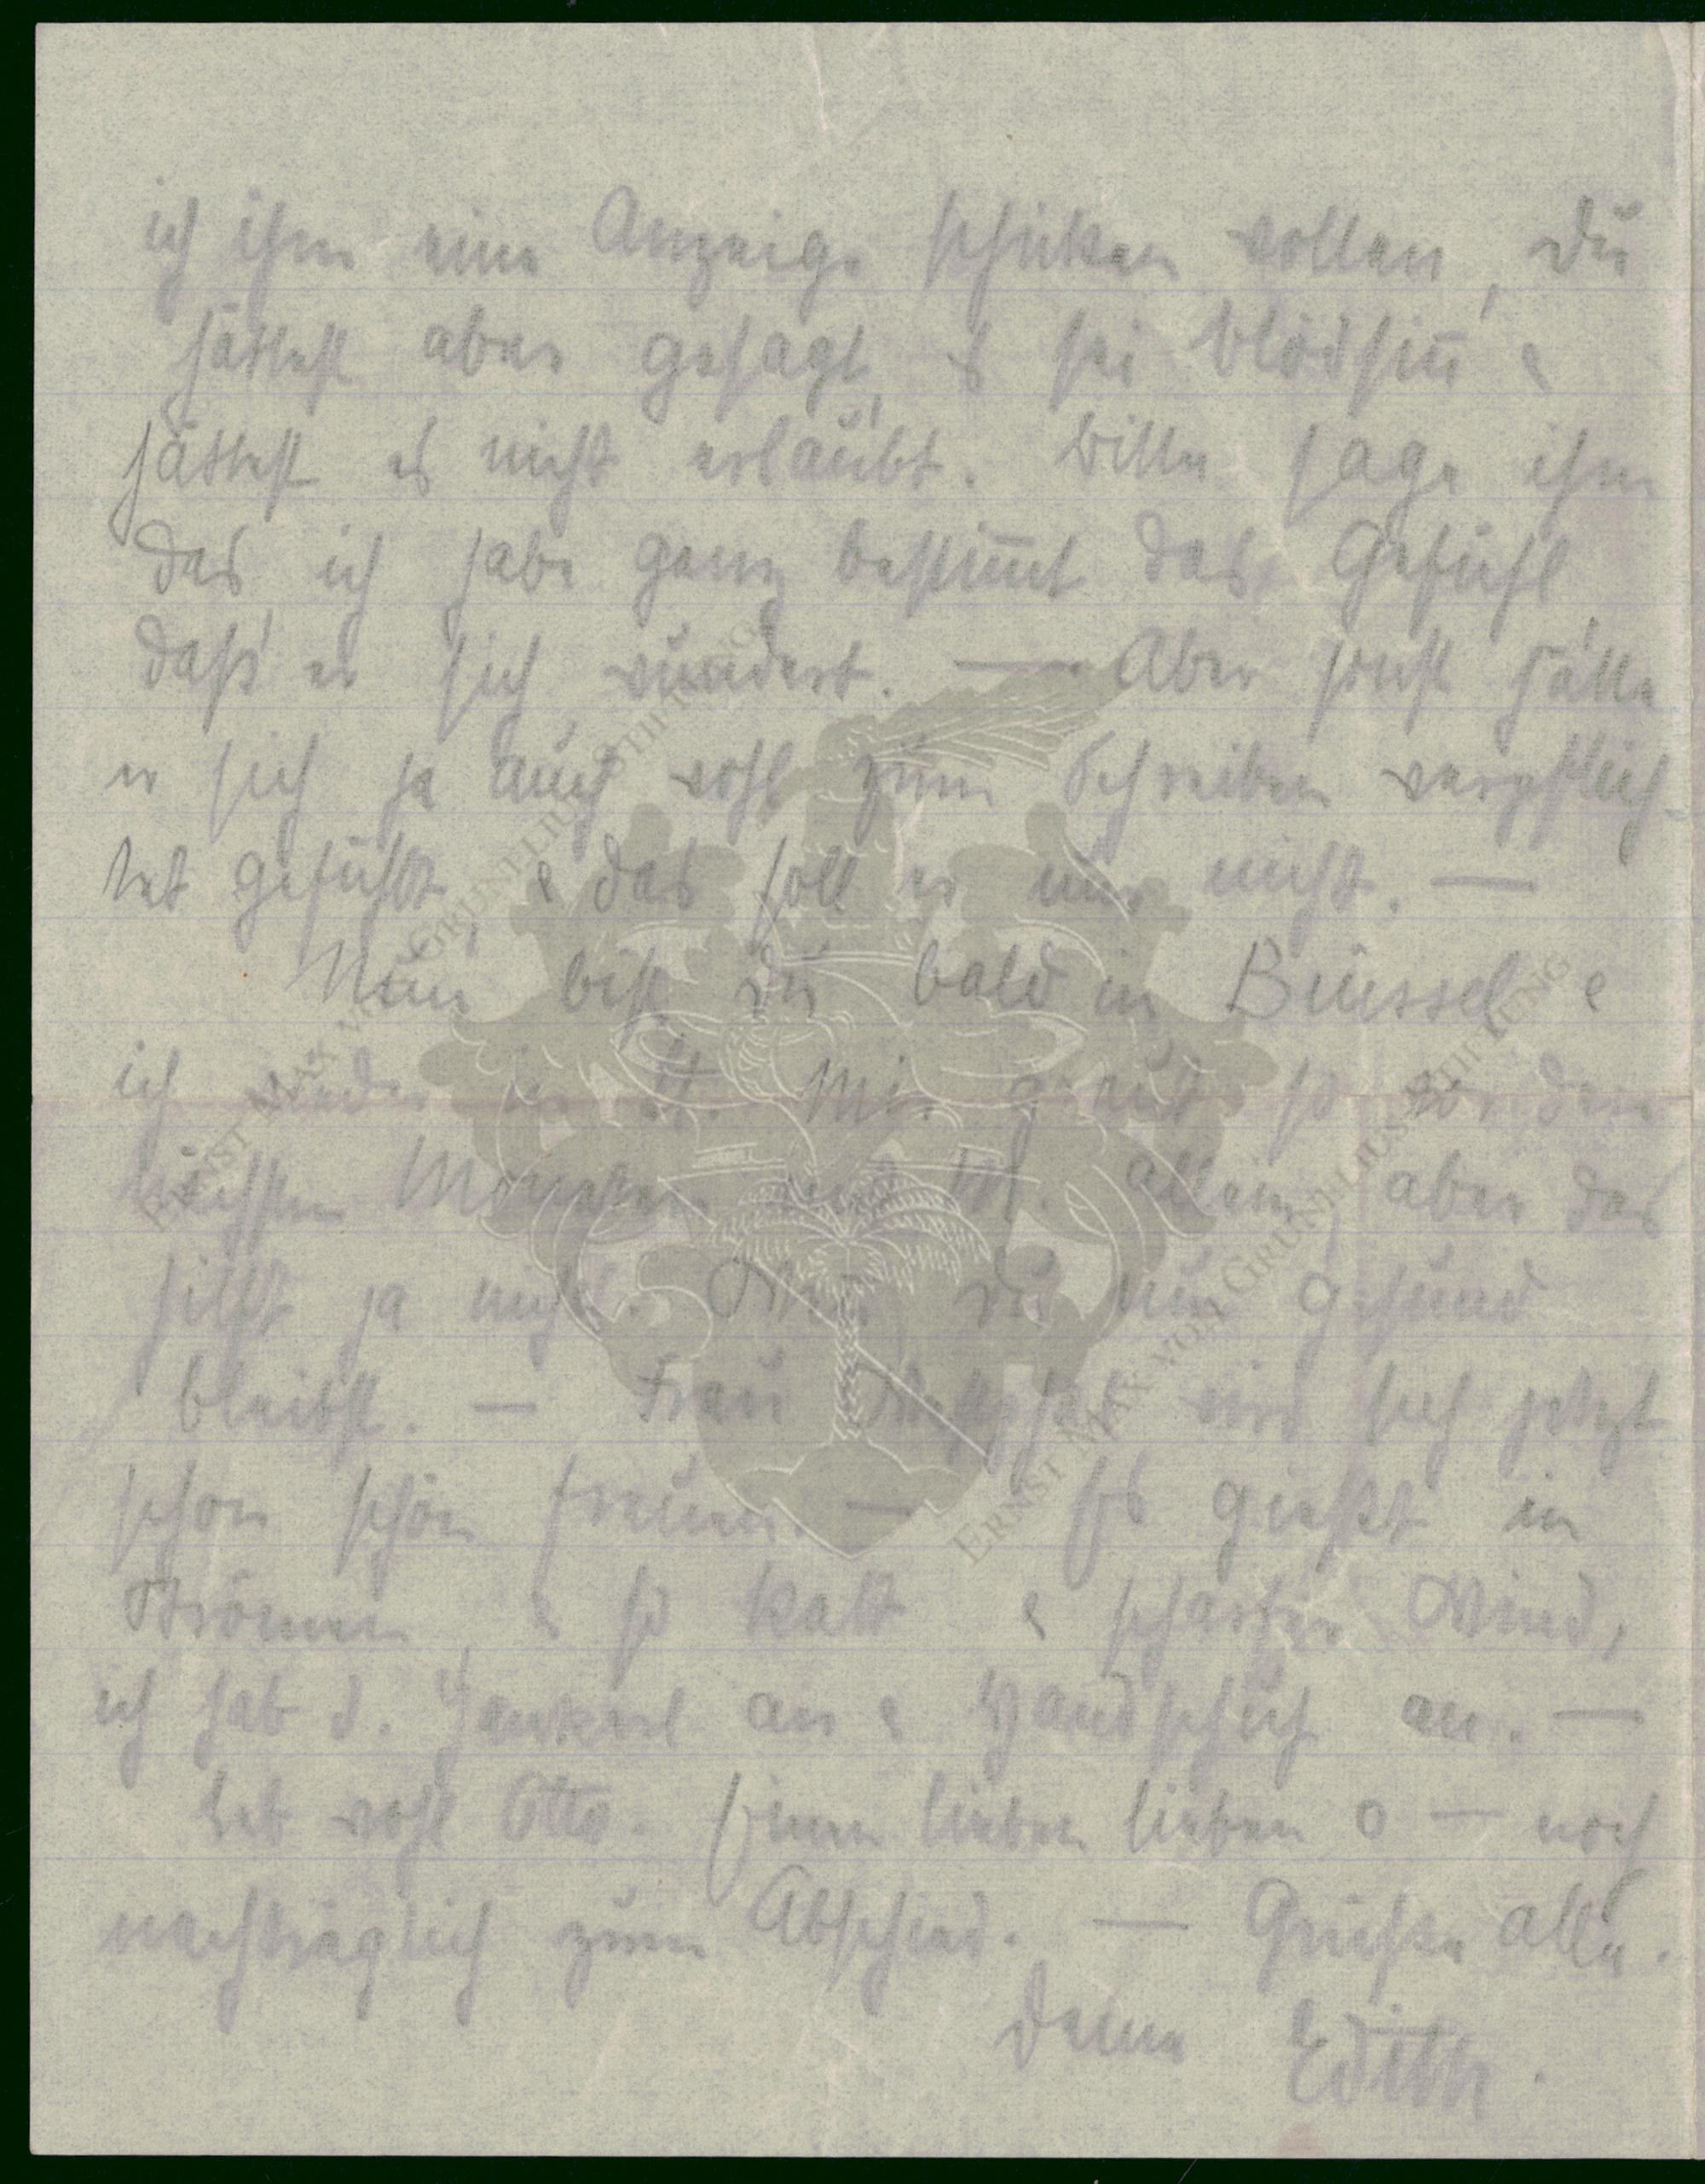 ich ihm eine Anzeige schicken wollen, du
hättest aber gesagt, es sei blödsin̄ &
hättest es nicht erlaubt. Bitte sage ihm
das ich habe ganz bestim̄t das Gefühl,
daß er sich wundert. — Aber sonst hätte
er sich ja auch wohl zum Schreiben verpflich-
tet gefühlt, & das soll er nur nicht. —
Nun bist du bald in Brüssel &
ich wieder in H. Mir graut so vor den
nächsten Monaten in H. allein, aber das
hilft ja nicht. Wenn du nur gesund
bleibst. — Frau wird sich jetzt
schon schön freuen. — Es gießt in
Strömen, & so kalt & scharfer Wind,
ich hab d. Jankerl an & Handschuh an. —
Leb wohl Otto. Einen lieben lieben o — noch
nachträglich zum Abschied. — Grüße alle.
Deine Edith.
ERNST MAX VON GRUNELIUS-STIFTUNG
ERNST MAX VON GRUNELIUS-STIFTUNG